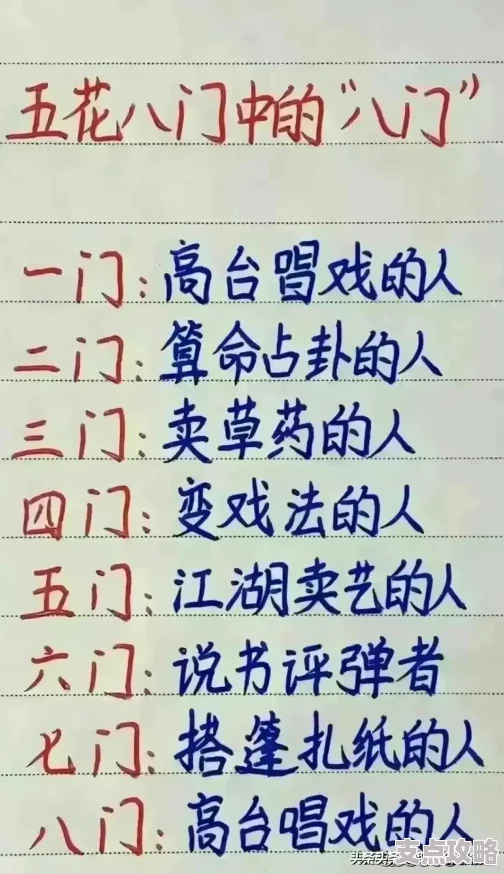 五花八门中的“八门”
一门:高台唱戏的人
二门:算命占卦的人
三门:卖草药的人
四门:变戏法的人
五门:江湖卖艺的人
六门:说书评弹者
七门:搭篷扎纸的人
八门:高台唱戏的人
支点攻略